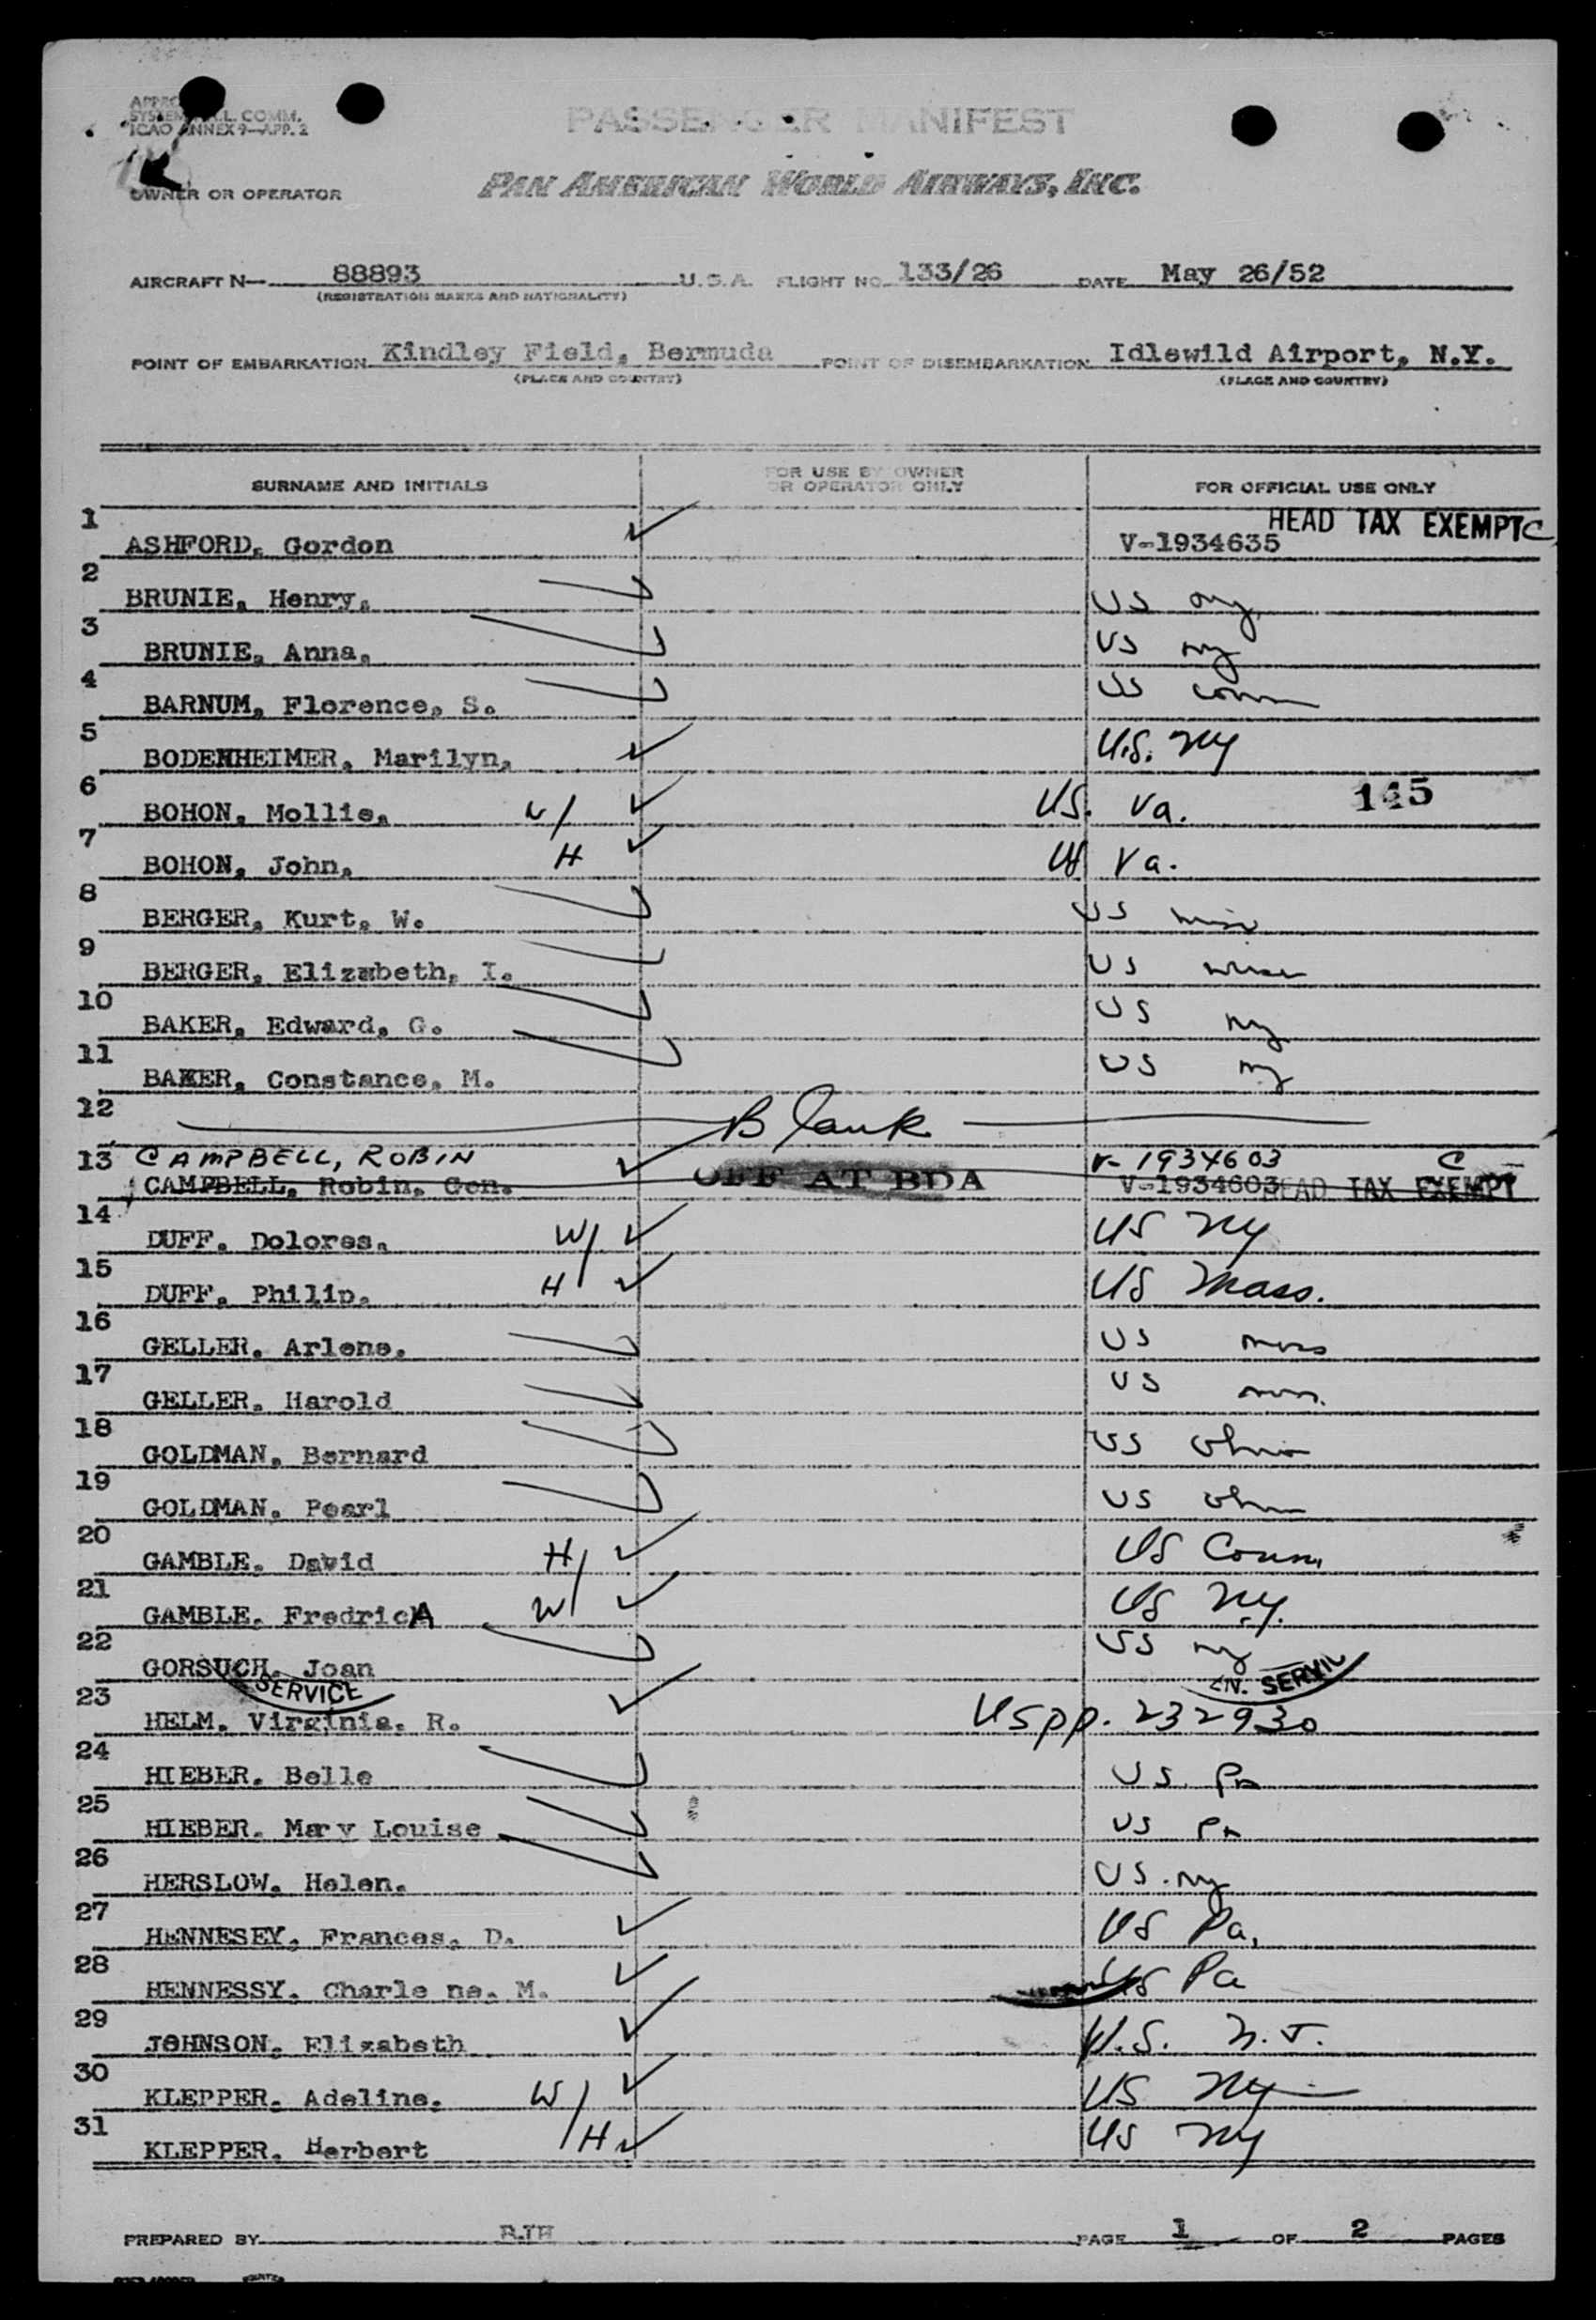 PASSENGER MANIFEST
ICAO ANNEX 9—APP. 2
OWNER OR OPERATOR PAN AMERICAN WORLD AIRWAYS, INC.
AIRCRAFT N— 88893 U.S.A. FLIGHT NO. 133/26 DATE May 26/52
(REGISTRATION MARKS AND NATIONALITY)
POINT OF EMBARKATION Kindley Field, Bermuda POINT OF DISEMBARKATION Idlewild Airport, N.Y.
(PLACE AND COUNTRY) (PLACE AND COUNTRY)
SURNAME AND INITIALS FOR USE BY OWNER OR OPERATOR ONLY FOR OFFICIAL USE ONLY
1 ASHFORD, Gordon V-1934635 HEAD TAX EXEMPT C
2 BRUNIE, Henry, US NY
3 BRUNIE, Anna, US NY
4 BARNUM, Florence, S. US Conn
5 BODENHEIMER, Marilyn, U.S. NY
6 BOHON, Mollie, W/ US. Va. 145
7 BOHON, John, H US Va.
8 BERGER, Kurt, W. US
9 BERGER, Elizabeth, I. US
10 BAKER, Edward, G. US NY
11 BAKER, Constance, M. US NY
12 Blank
13 CAMPBELL, ROBIN V-1934603 C
CAMPBELL, Robin, Gen. OFF AT BDA V-1934603 HEAD TAX EXEMPT
14 DUFF, Dolores, W/ US NY
15 DUFF, Philip, H US Mass.
16 GELLER, Arlene, US Mass
17 GELLER, Harold US
18 GOLDMAN, Bernard US Ohio
19 GOLDMAN, Pearl US Ohio
20 GAMBLE, David H/ US Conn.
21 GAMBLE, FredricA W/ US NY.
22 GORSUCH, Joan US NY
SERVICE
23 HELM, Virginia, R. US pp. 232930
24 HIEBER, Belle US. Pa
25 HIEBER, Mary Louise US Pa
26 HERSLOW, Helen, US. NY
27 HENNESEY, Frances, D. US Pa.
28 HENNESSY, Charle ne, M. US Pa
29 JOHNSON, Elizabeth U.S. N.J.
30 KLEPPER, Adeline, W/ US NY
31 KLEPPER, Herbert /H US NY
PREPARED BY PAGE 1 OF 2 PAGES